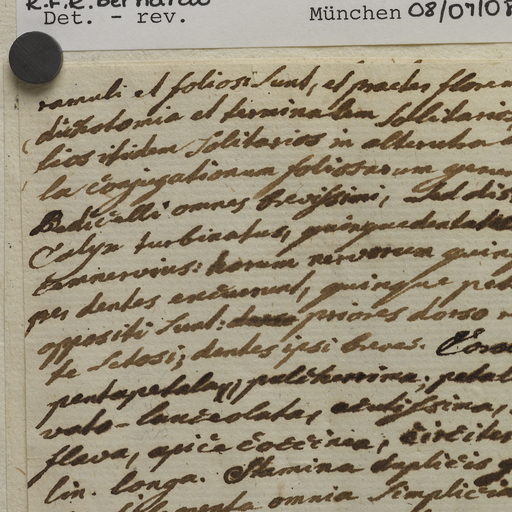 R.F.R. Bernardo
Det. - rev. München 08/07/08
ramuli et foliosi sunt, et praeter florem
dichotomia et terminalem sollitarios
lios itidem solitarios in alterutra
la conjugationum foliosarum gener
Pedicelli omnes brevissimi,
Calyx turbinatus, quinquedentatus
cemnervius: horum nervorum quinq
per dentes excurrunt, quinque pet
oppositi sunt: priores dorso
te setosi; dentes ipsi breves. Coro
pentapetala, palitamina; petal
vato-lanceolata, acutissima,
flava, apice coccinea, circiter
lin. longa. Stamina duplicis
filamenta omnia simplicia